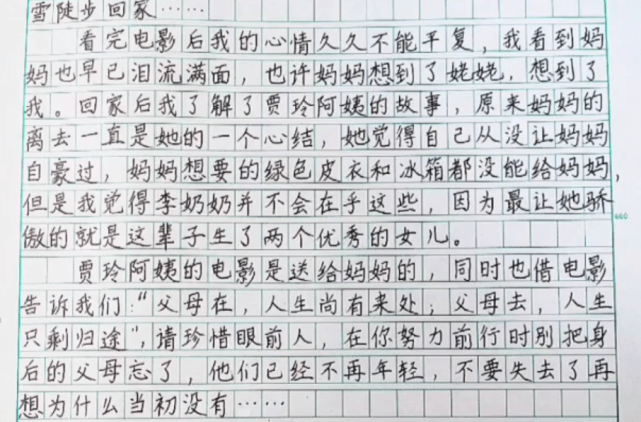 雪徒步回家……
看完电影后我的心情久久不能平复，我看到妈
妈也早已泪流满面，也许妈妈想到了姥姥，想到了
我。回家后我了解了贾玲阿姨的故事，原来妈妈的
离去一直是她的一个心结，她觉得自己从没让妈妈
自豪过，妈妈想要的绿色皮衣和冰箱都没能给妈妈，
但是我觉得李奶奶并不会在乎这些，因为最让她骄
傲的就是这辈子生了两个优秀的女儿。
贾玲阿姨的电影是送给妈妈的，同时也借电影
告诉我们：“父母在，人生尚有来处；父母去，人生
只剩归途”，请珍惜眼前人，在你努力前行时别把身
后的父母忘了，他们已经不再年轻，不要失去了再
想为什么当初没有……